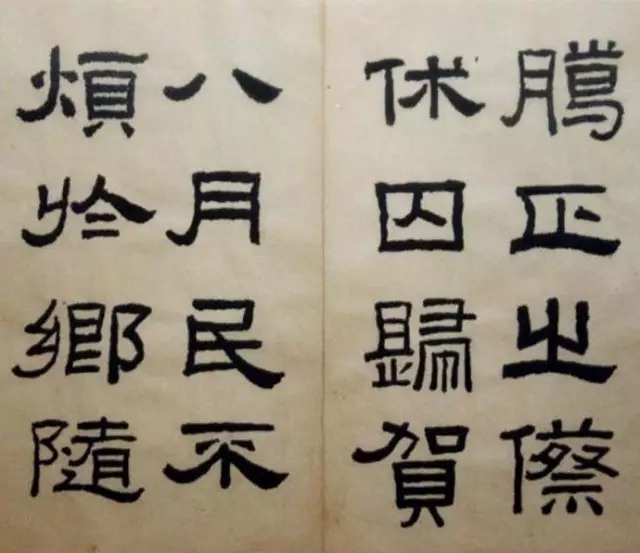 臘正之傺
休囚歸賀
八月民不
煩於鄉隨